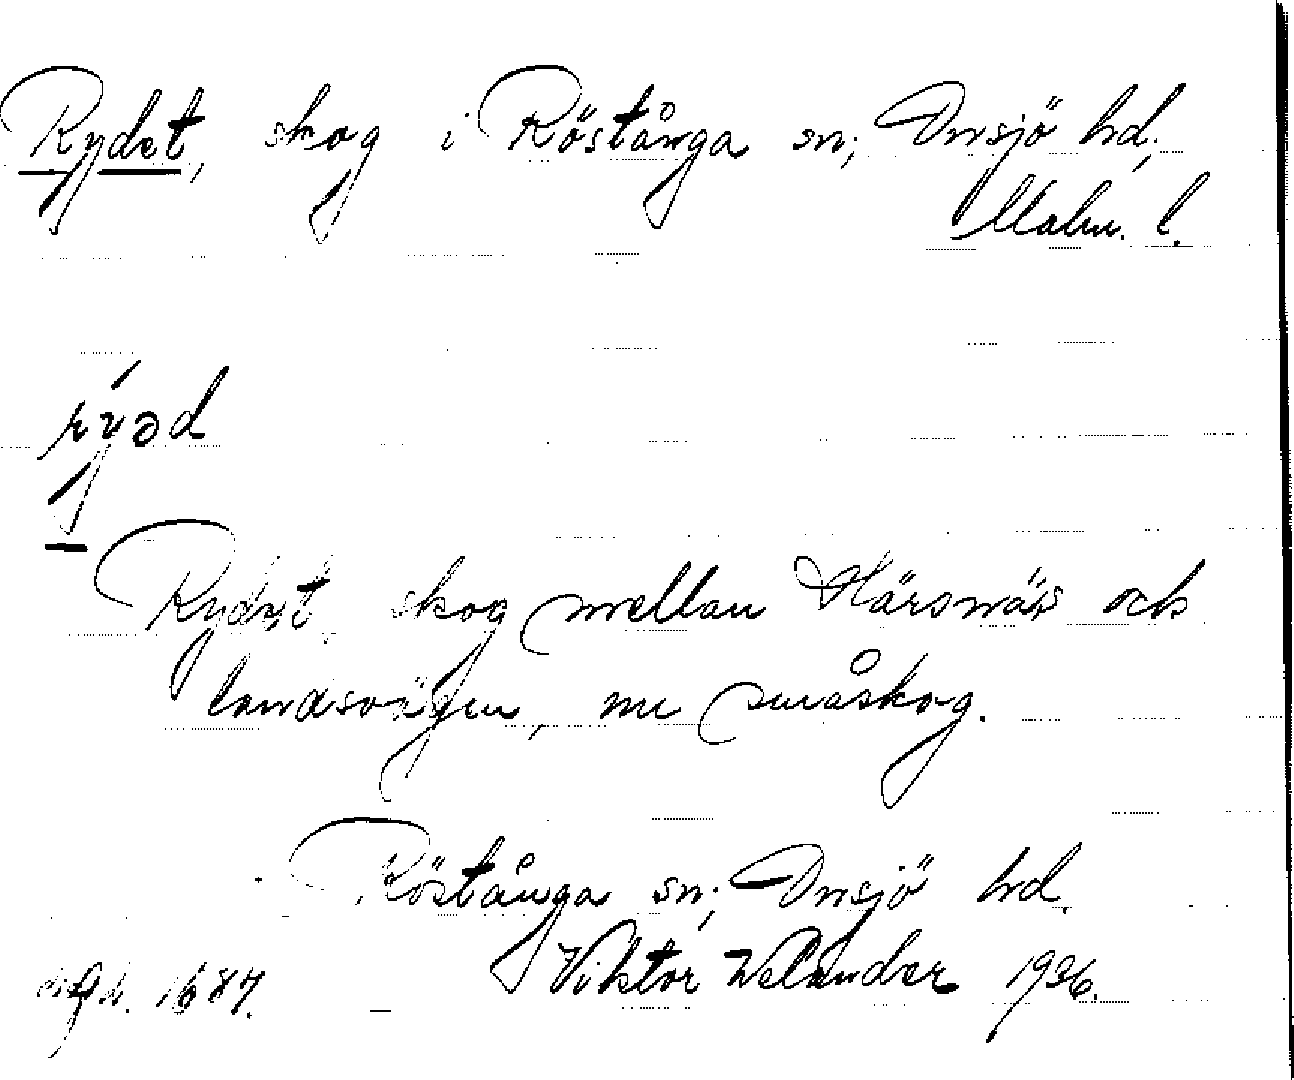 Rydet, skog i Röstånga sn; Onsjö hd;
Malm. l.
rýəd
Rydet, skog mellan Härsnäs och
landsvägen, nu småskog.
Röstånga sn; Onsjö hd.
Viktor Welander 1936.
1687.